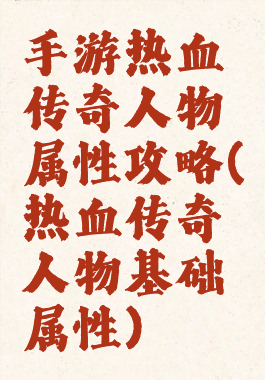 手游热血
传奇人物
属性攻略(
热血传奇
人物基础
属性)